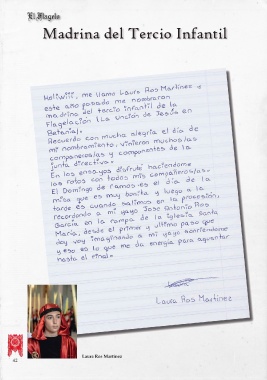 El Flagelo
Madrina del Tercio Infantil
Holiwiii, me llamo Laura Ros Martínez y
este año pasado me nombraron
madrina del tercio infantil de la
Flagelación (La unción de Jesús en
Betania).
Recuerdo con mucha alegría el día de
mi nombramiento, vinieron muchos/as
compañeros/as y componentes de la
junta directiva.
En los ensayos disfruto haciéndome
las fotos con todos mis compañeros/as.
El Domingo de ramos es el día de la
misa que es muy bonita y luego a la
tarde es cuando salimos en la procesión,
recordando a mi yayo José Antonio Ros
García en la rampa de la Iglesia Santa
María, desde el primer y último paso que
doy voy imaginando a mi yayo sonriéndome
y eso es lo que me da energía para aguantar
hasta el final.
Laura Ros Martínez
Laura Ros Martínez
42